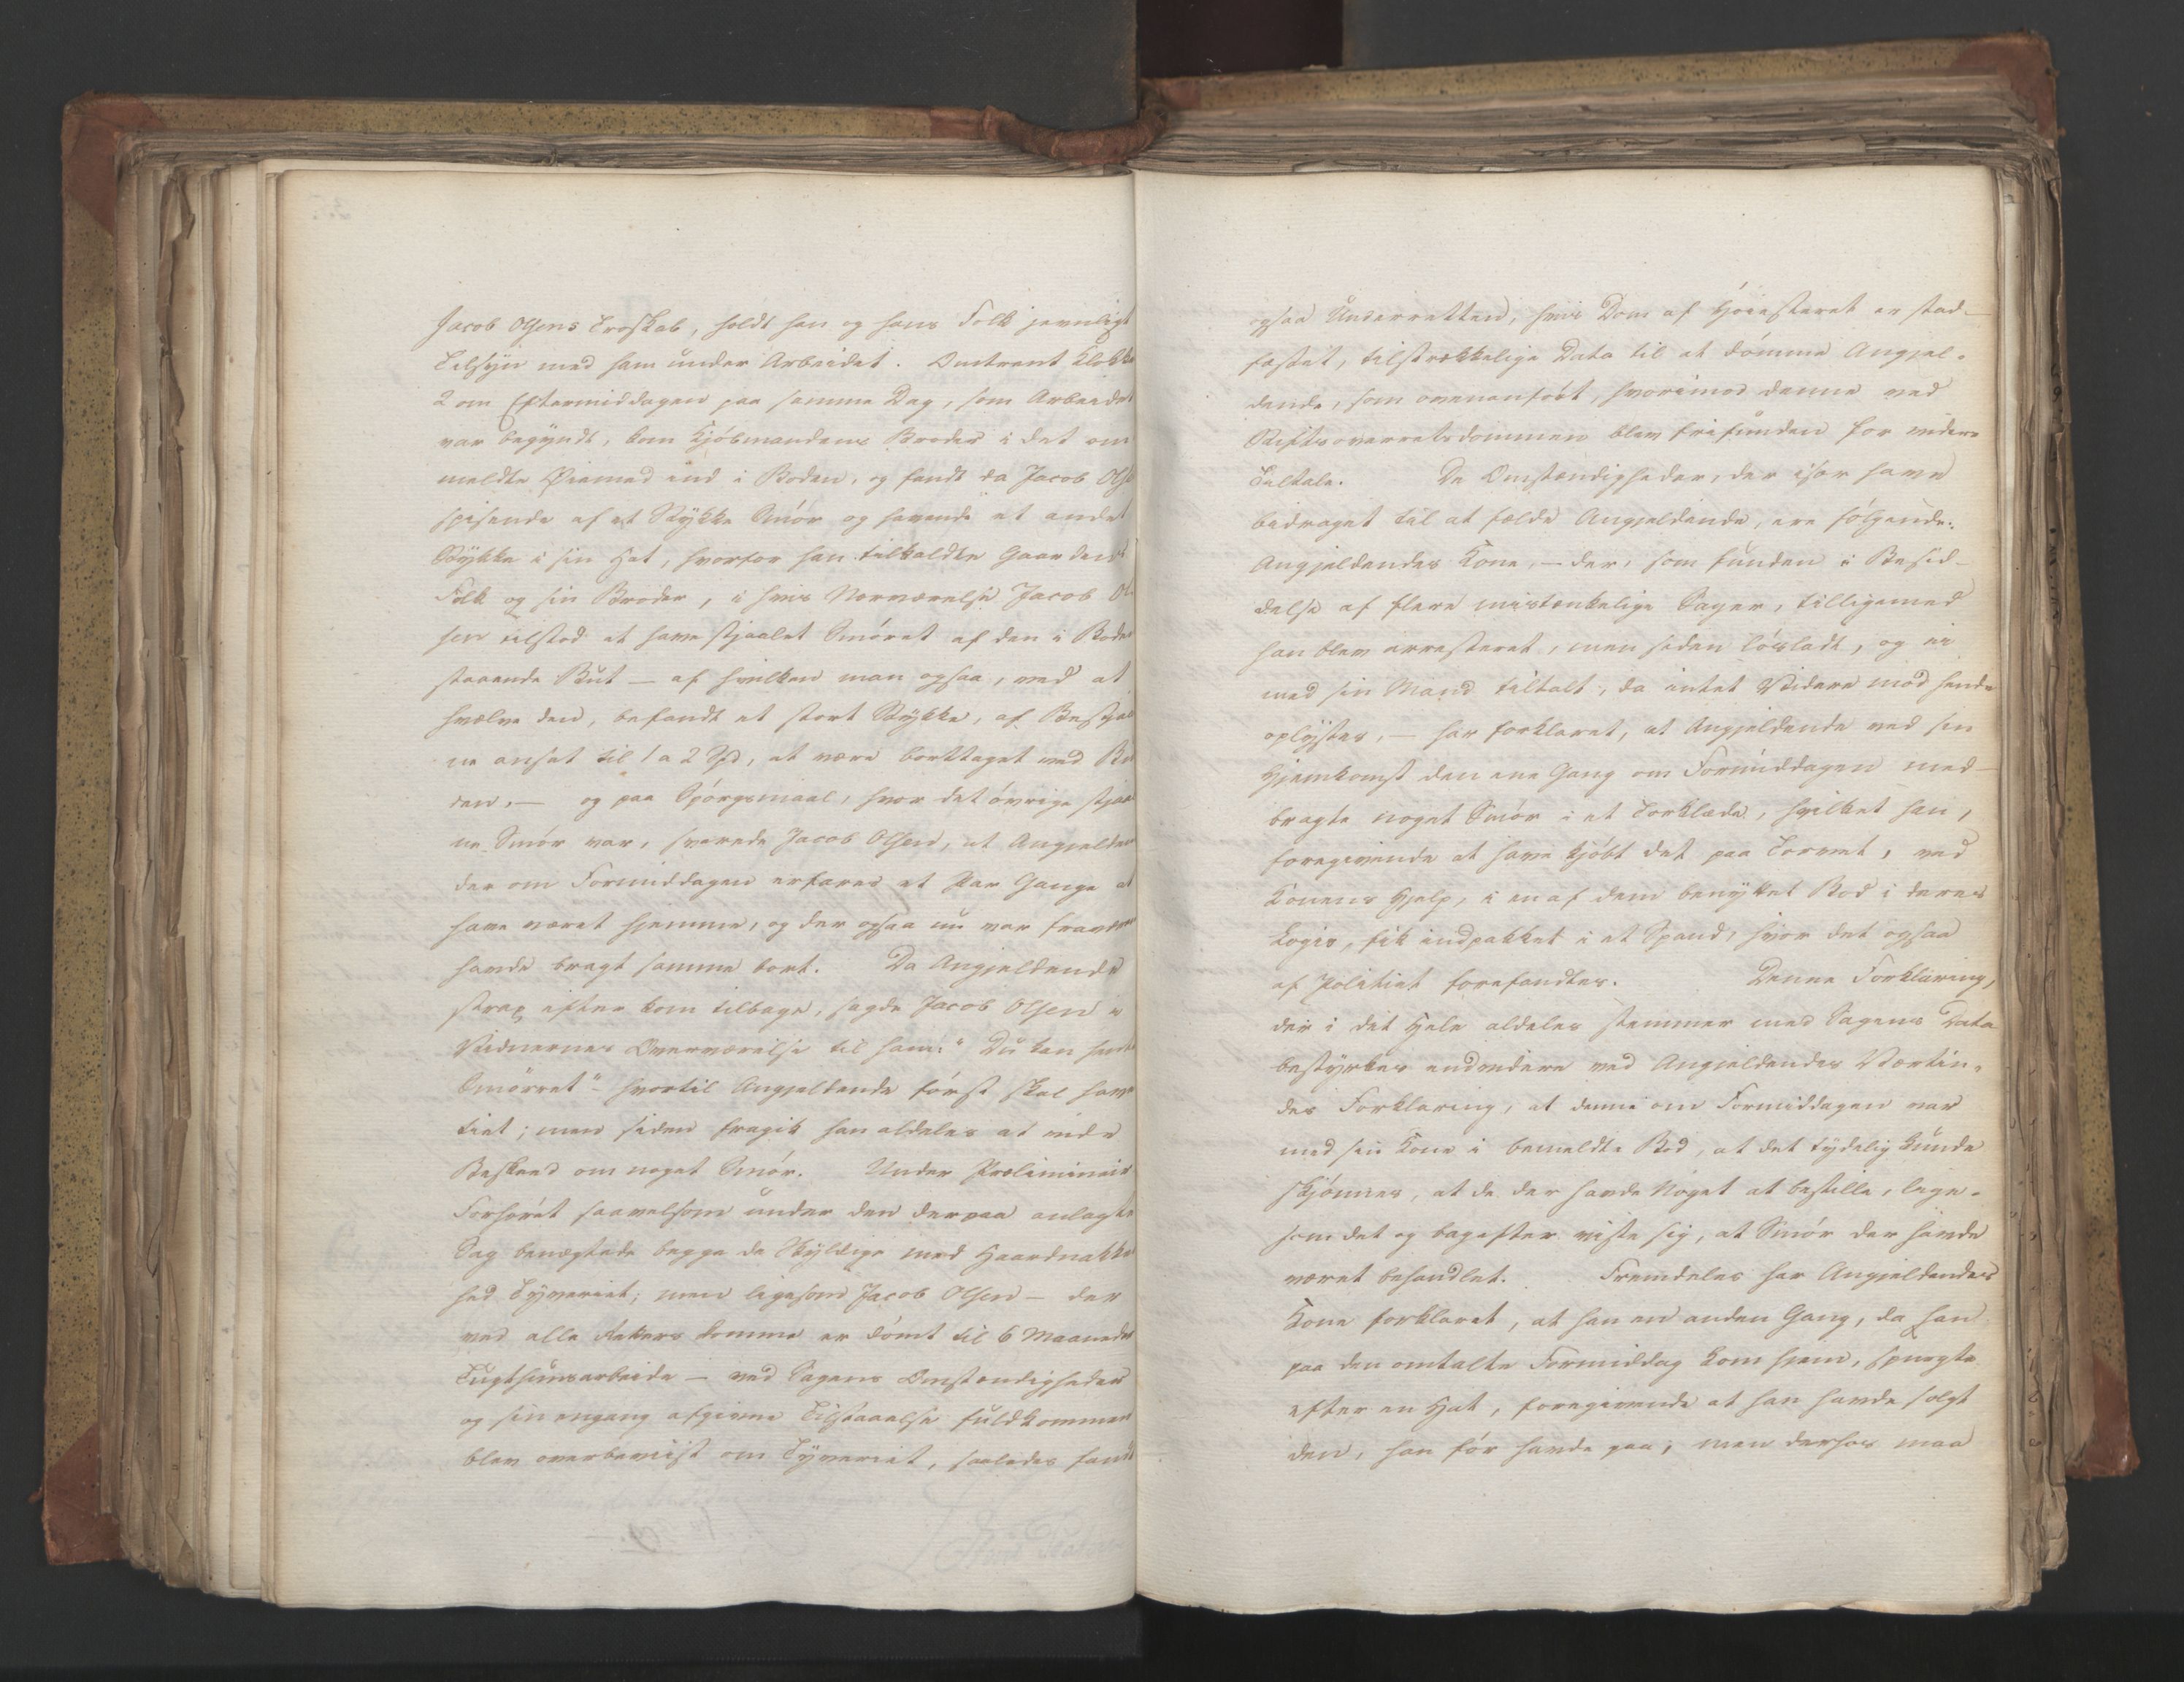 Jacob Olsens Troskab, holdt han og hans Folk jevnligt
Tilsyn med ham under Arbeidet. Omtrent Klokke
2 om Eftermiddagen paa samme Dag, som Arbeidet
var begyndt, kom Kjöbmandens Broder i det om
meldte Øiemed ind i Boden, og fandt da Jacob Ols
spisende af et Stykke Smör og havende et andet
Stykke i sin Hat, hvorfor han tilkaldte Gaardens
Folk og sin Broder, i hvis Nærværelse Jacob Ol-
sen tilstod at have stjaalet Smöret af den i Boden
staaende Büt — af hvilken man ogsaa, ved at
hvælve den, befandt et stort Stykke, af Bestjaal
ne anset til 1 a 2 Bpd, at være borttaget ved Bu
den, — og paa Spörgsmaal, hvor det övrige stjaal
ne Smör var, svarede Jacob Olsen, at Angjelden
der om Formiddagen erfares et Par Gange at
have været hjemme, og der ogsaa nu var fravær
havde bragt samme bort. Da Angjeldende
strax efter kom tilbage, sagde Jacob Olsen i
Vidnernes Overværelse til ham: "Du kan hente
Smörret" hvortil Angjeldende först skal have
tiet; men siden fragik han aldeles at vide
Beskeed om noget Smör. Under Præliminair
Forhöret saavelsom under den derpaa anlagte
Sag benægtede begge de Skyldige med Haardnakke
hed Tyveriet; men ligesom Jacob Olsen — der
ved alle Retters Domme er dömt til 6 Maaneders
Tugthuusarbeide — ved Sagens Omstændigheder
og sin engang afgivne Tilstaaelse fuldkommen
blev overbeviist om Tyveriet, saaledes fandt
ogsaa Underretten, hvis Dom af Höiesteret er stad-
fæstet, tilstrækkelige Data til at dömme Angjel-
dende, som ovenanfört, hvorimod denne ved
Stiftsoverretsdommen blev frifunden for videre
Tiltale. De Omstændigheder, der især have
bidraget til at fælde Angjeldende, ere fölgende:
Angjeldendes Kone, — der, som funden i Besid-
delse af flere mistænkelige Sager, tilligemed
han blev arresteret, men siden lösladt, og ei
med sin Mand tiltalt, da intet Videre mod hende
oplystes, — har forklaret, at Angjeldende ved sin
Hjemkomst den ene Gang om Formiddagen med-
bragte noget Smör i et Törklæde, hvilket han,
foregivende at have kjöbt det paa Torvet, ved
Konens Hjelp, i en af dem benyttet Bod i deres
Logis, fik indpakket i et Spand, hvor det ogsaa
af Politiet forefandtes. Denne Forklaring,
der i det Hele aldeles stemmer med Sagens Data
bestyrkes endvidere ved Angjeldendes Værtin-
des Forklaring, at denne om Formiddagen var
med sin Kone i bemeldte Bod, at det tydelig kunde
skjönnes, at de der havde Noget at bestille, lige-
som det og bagefter viste sig, at Smör der havde
været behandlet. Fremdeles har Angjeldendes
Kone forklaret, at han en anden Gang, da han
paa den omtalte Formiddag kom hjem, spurgte
efter en Hat, foregivende at han havde solgt
den, han för havde paa; men derhos maa